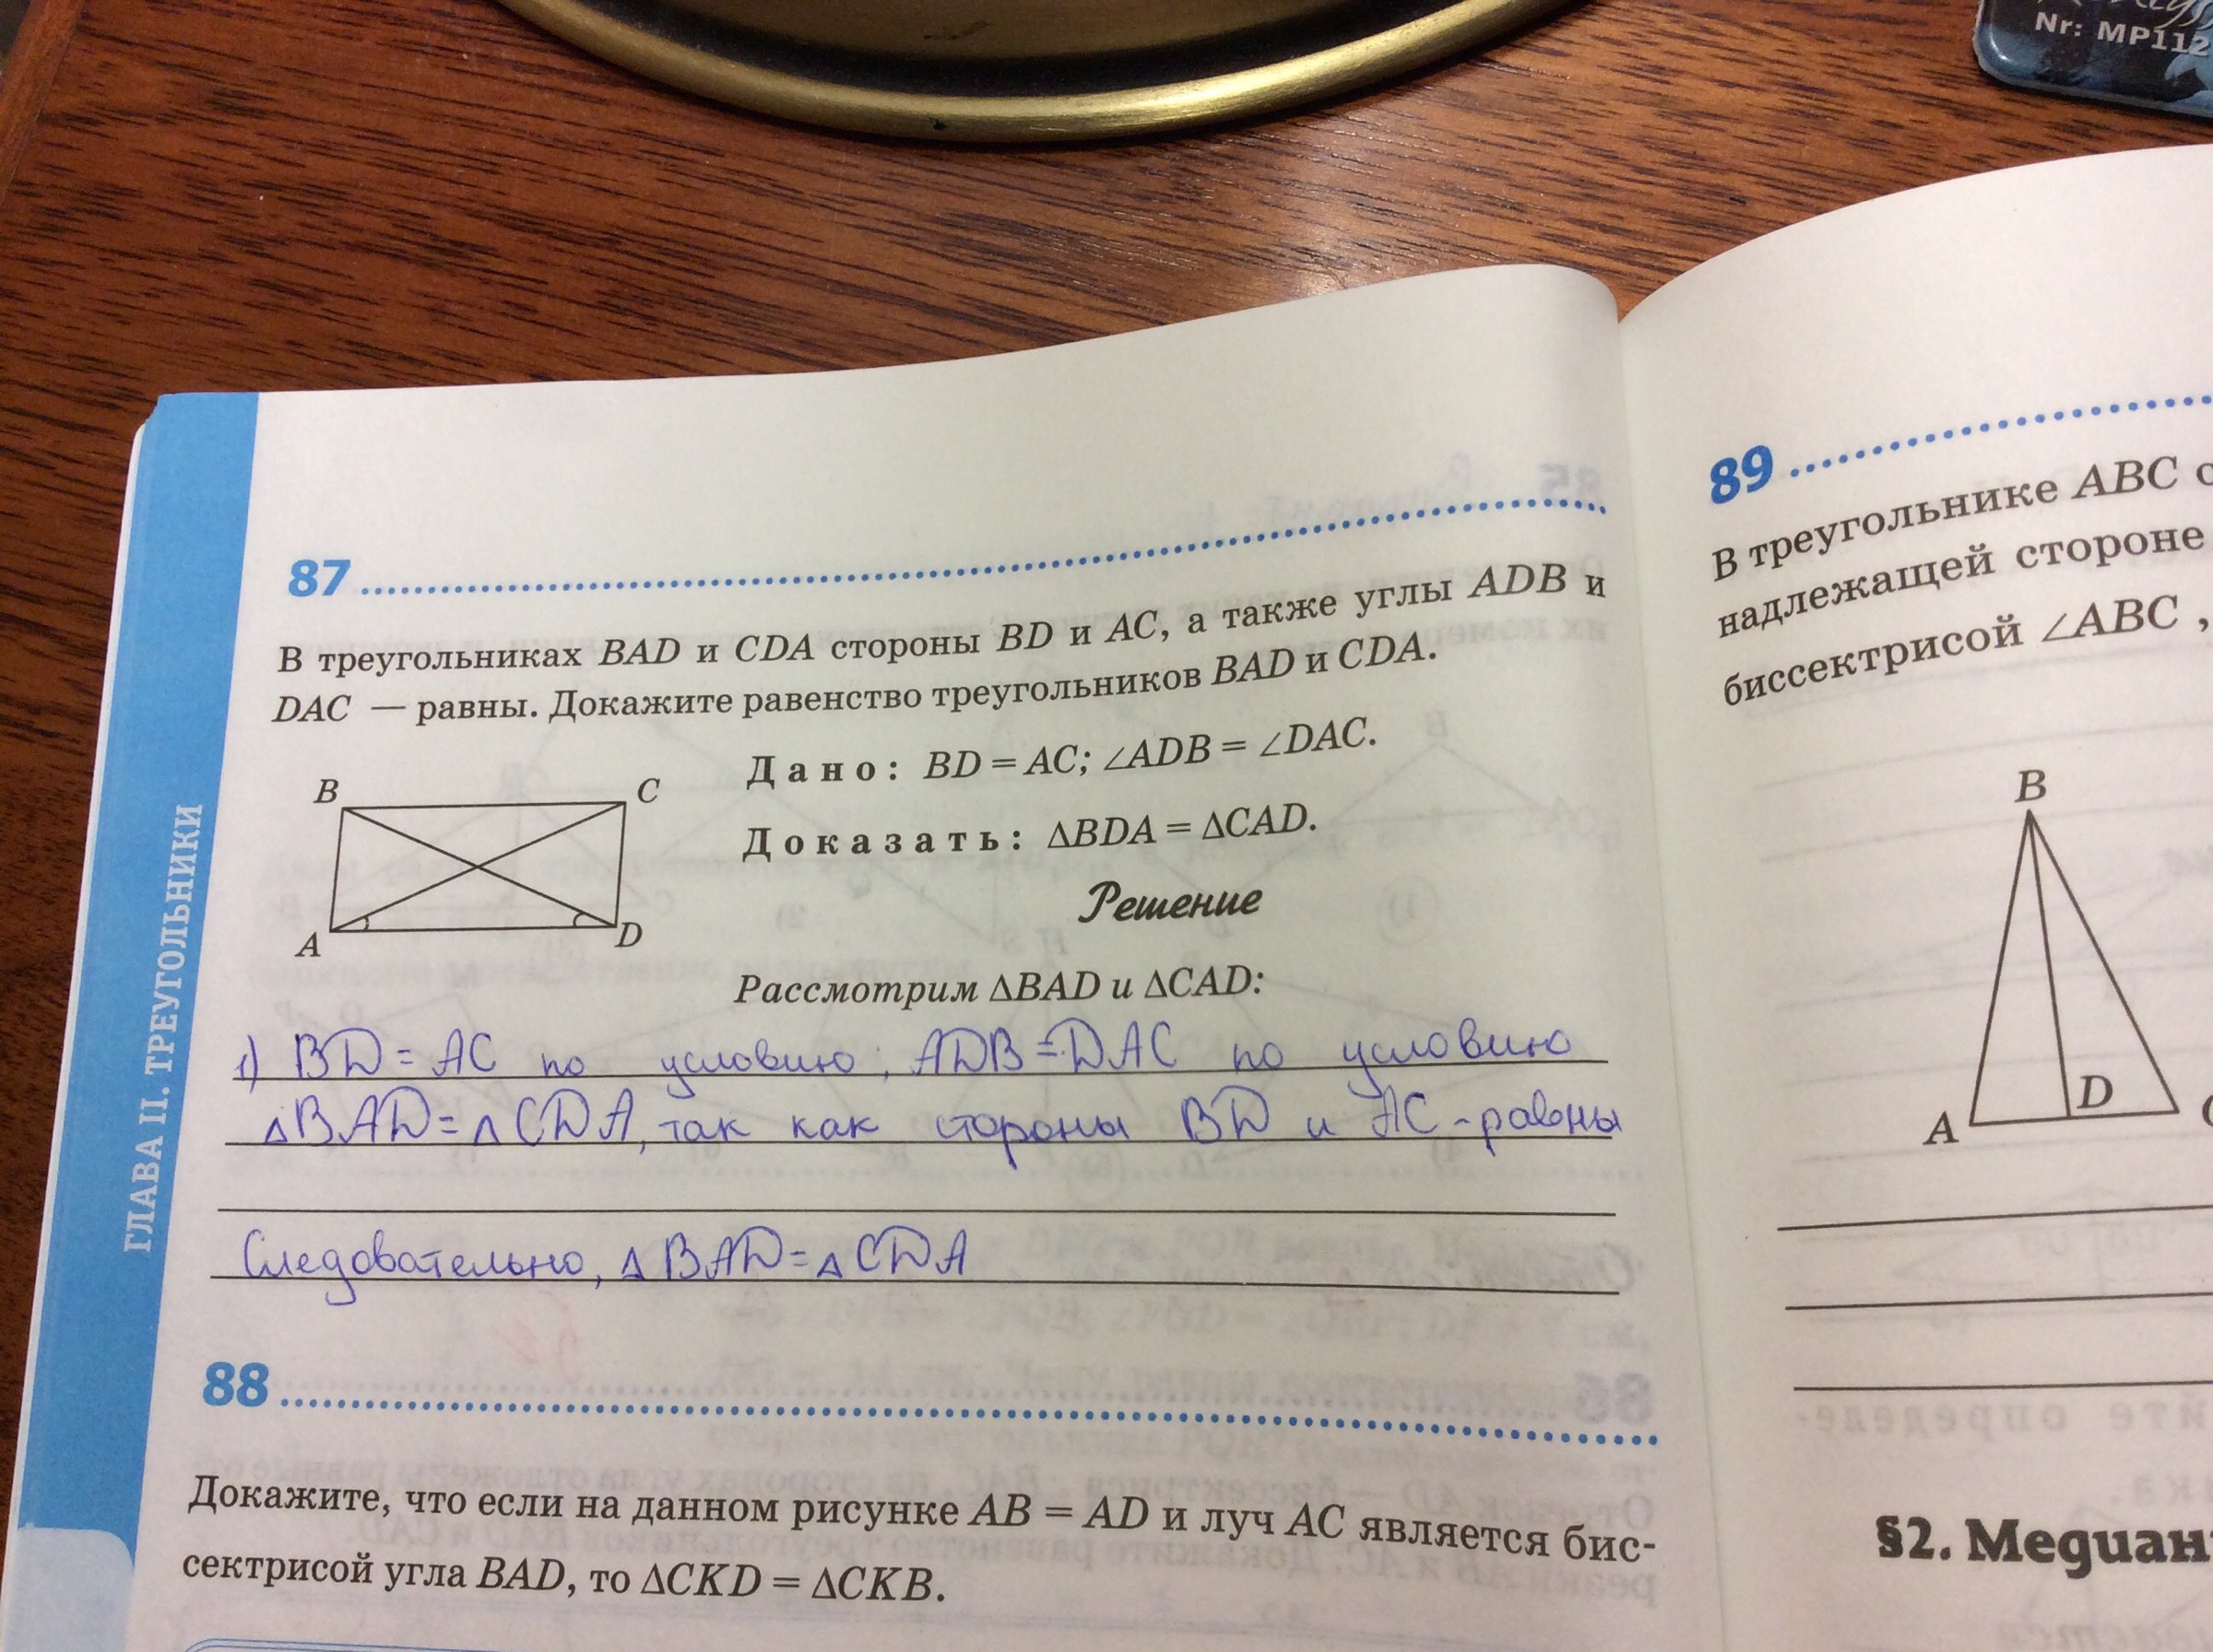 Nr: MP112
87
В треугольниках BAD и CDA стороны BD и AC, а также углы ADB и
DAC — равны. Докажите равенство треугольников BAD и CDA.
Дано: BD = AC; ∠ADB = ∠DAC.
Доказать: ΔBDA = ΔCAD.
B
C
A
D
Решение
Рассмотрим ΔBAD и ΔCAD:
1) BD = AC по условию; ADB = DAC по условию
ΔBAD = ΔCDA, так как стороны BD и AC - равны
Следовательно, ΔBAD = ΔCDA
88
Докажите, что если на данном рисунке AB = AD и луч AC является бис-
сектрисой угла BAD, то ΔCKD = ΔCKB.
ГЛАВА II. ТРЕУГОЛЬНИКИ
89
В треугольнике ABC
надлежащей стороне
биссектрисой ∠ABC ,
B
A
D
§2. Медиан